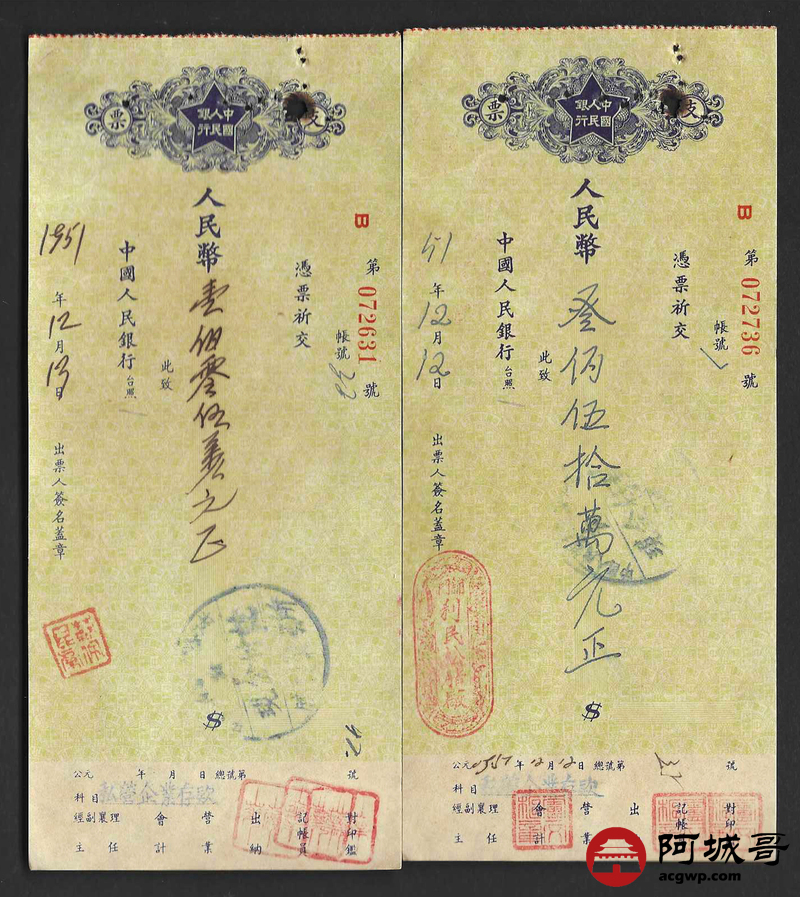 支票
中國人民銀行
B 第072631號
帳號 32
憑票祈交
人民幣壹佰零伍萬元正
此致
中國人民銀行台照
1951年12月13日
出票人簽名蓋章
$
公元 年 月 日 總號第 號
科目 私營企業存款
經副襄理
主任
會計
營業
出納
記帳員
對印鑑
支票
中國人民銀行
B 第072736號
帳號 1
憑票祈交
人民幣叁佰伍拾萬元正
此致
中國人民銀行台照
51年12月12日
出票人簽名蓋章
利民
$
公元1951年12月12日 總號第 號
科目
經副襄理
主任
會計
營業
出
記帳
對印
阿城哥
acgwp.com